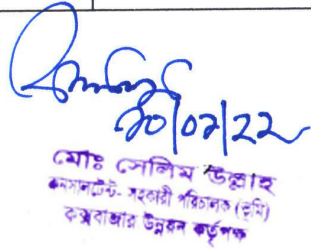 ২০|০২|২২
মোঃ সেলিম উল্লাহ
কনসালটেন্ট- সহকারী পরিচালক (ভূমি)
কক্সবাজার উন্নয়ন কর্তৃপক্ষ